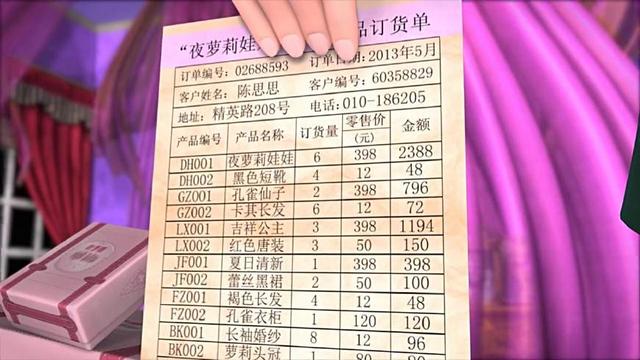 “夜萝莉娃 品订货单
订单编号：02688593 订单日期：2013年5月
客户姓名：陈思思 客户编号：60358829
地址：精英路208号 电话：010-186205
产品编号 产品名称 订货量 零售价(元) 金额
DH001 夜萝莉娃娃 6 398 2388
DH002 黑色短靴 4 12 48
GZ001 孔雀仙子 2 398 796
GZ002 卡其长发 6 12 72
LX001 吉祥公主 3 398 1194
LX002 红色唐装 3 50 150
JF001 夏日清新 1 398 398
JF002 蕾丝黑裙 2 50 100
FZ001 褐色长发 4 12 48
FZ002 孔雀衣柜 1 120 120
BK001 长袖婚纱 8 12 96
BK002 萝莉头冠 1 80